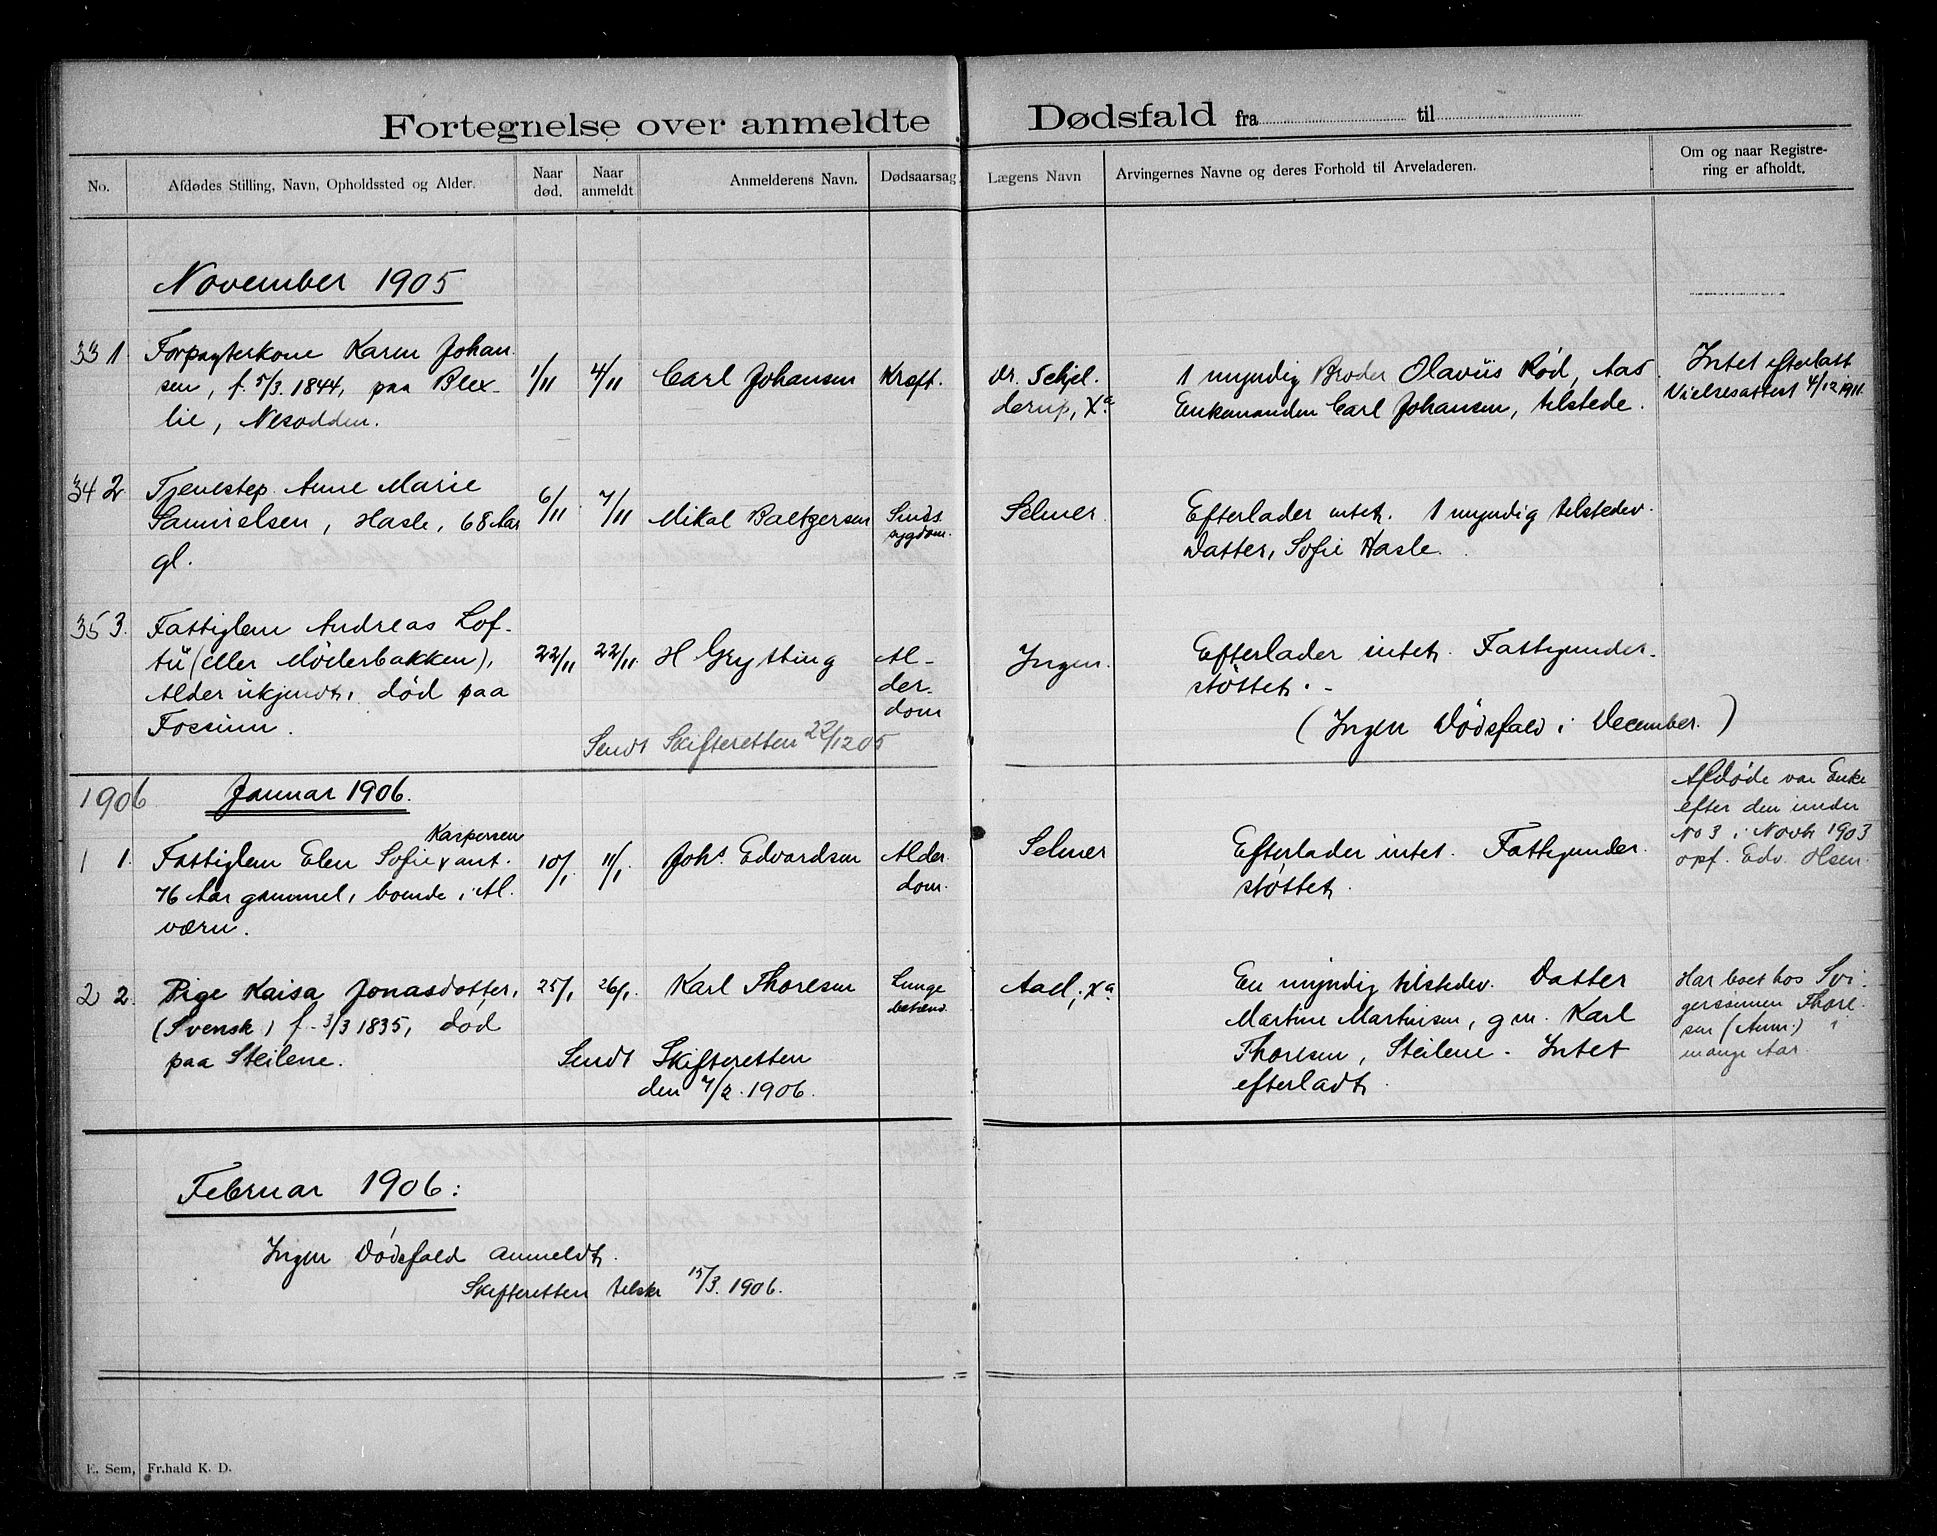 Fortegnelse over anmeldte Dødsfald fra til
No. Afdødes Stilling, Navn, Opholdssted og Alder. Naar død. Naar anmeldt Anmelderens Navn. Dødsaarsag. Lægens Navn Arvingernes Navne og deres Forhold til Arveladeren. Om og naar Registrering er afholdt.
November 1905
33 1. Forpagterkone Karen Johan-
sen, f. 5/3. 1844, paa Blex-
lie, Nesodden.
1/11 4/11 Carl Johansen Kræft.
Dr. Schjel-
derup, Xa
1 myndig Broder Olavus Rød, Aas.
Enkemanden Carl Johansen, tilstede.
Intet efterlatt
Vielsesattest 4/12 1911.
34 2. Tjenestep. Anne Marie
Samuelsen, Hasle, 68 Aar
gl.
6/11 7/11 Mikal Baltzersen
Sinds
sygdom.
Selmer.
Efterlader intet. 1 myndig tilstedev.
Datter, Sofie Hasle.
35 3. Fattiglem Andreas Lof-
tu (eller Møllerbakken),
Alder ukjendt, død paa
Fossum.
22/11 22/11. H Grytting
Al-
der-
dom
Ingen.
Efterlader intet. Fattigunder-
støttet. -
(Ingen Dødsfald i December.)
Sendt Skifteretten 22/12 05
1906 Januar 1906.
Kaspersen
1 1. Fattiglem Elen Sofie x ant.
76 Aar gammel, boende i Al-
værn.
10/1 11/1 Johs. Edvardsen
Alder-
dom.
Selmer
Efterlader intet. Fattigunder-
støttet.
Afdøde var Enke
efter den under
No 3 i Novbr 1903
opf. Edv. Olsen.
2 2. Pige Kaisa Jonasdotter,
(Svensk) f. 3/3 1835, død
paa Steilene.
25/1 26/1. Karl Thoresen
Lunge
betænd.
Aael, Xa
En myndig tilstedev. Datter
Martine Martinsen, gm. Karl
Thoresen, Steilene. Intet
efterladt.
Har boet hos Svi-
gersønnen Thore-
sen (Anm.) i
mange Aar.
Sendt Skifteretten
den 7/2. 1906.
Februar 1906:
Ingen Dødsfald anmeldt.
Skifteretten tilskr 15/3. 1906.
E. Sem, Fr.hald K. D.